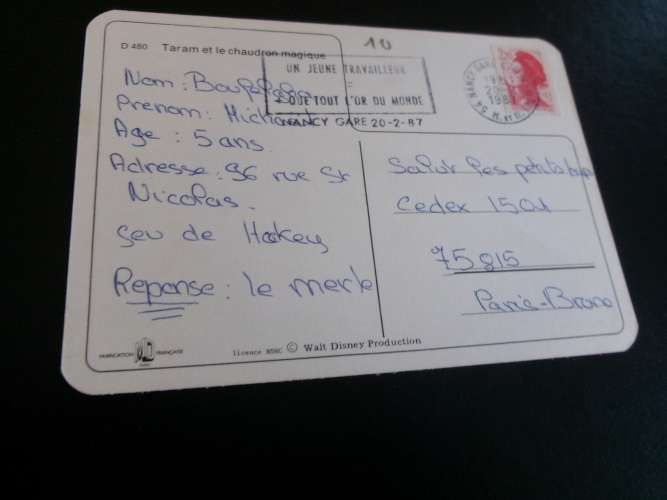 D 480 Taram et le chaudron magique
10
UN JEUNE TRAVAILLEUR
=
QUE TOUT L'OR DU MONDE
NANCY GARE 20-2-87
NANCY GARE
54 M. et M.
Nom:
Prenom: Michael
Age : 5 ans.
Adresse: 96 rue St
Nicolas.
Jeu de Hockey
Reponse: le merle
Salut les petits loups
Cedex 1501
75815
Paris-Brune
FABRICATION FRANÇAISE
licence © Walt Disney Production